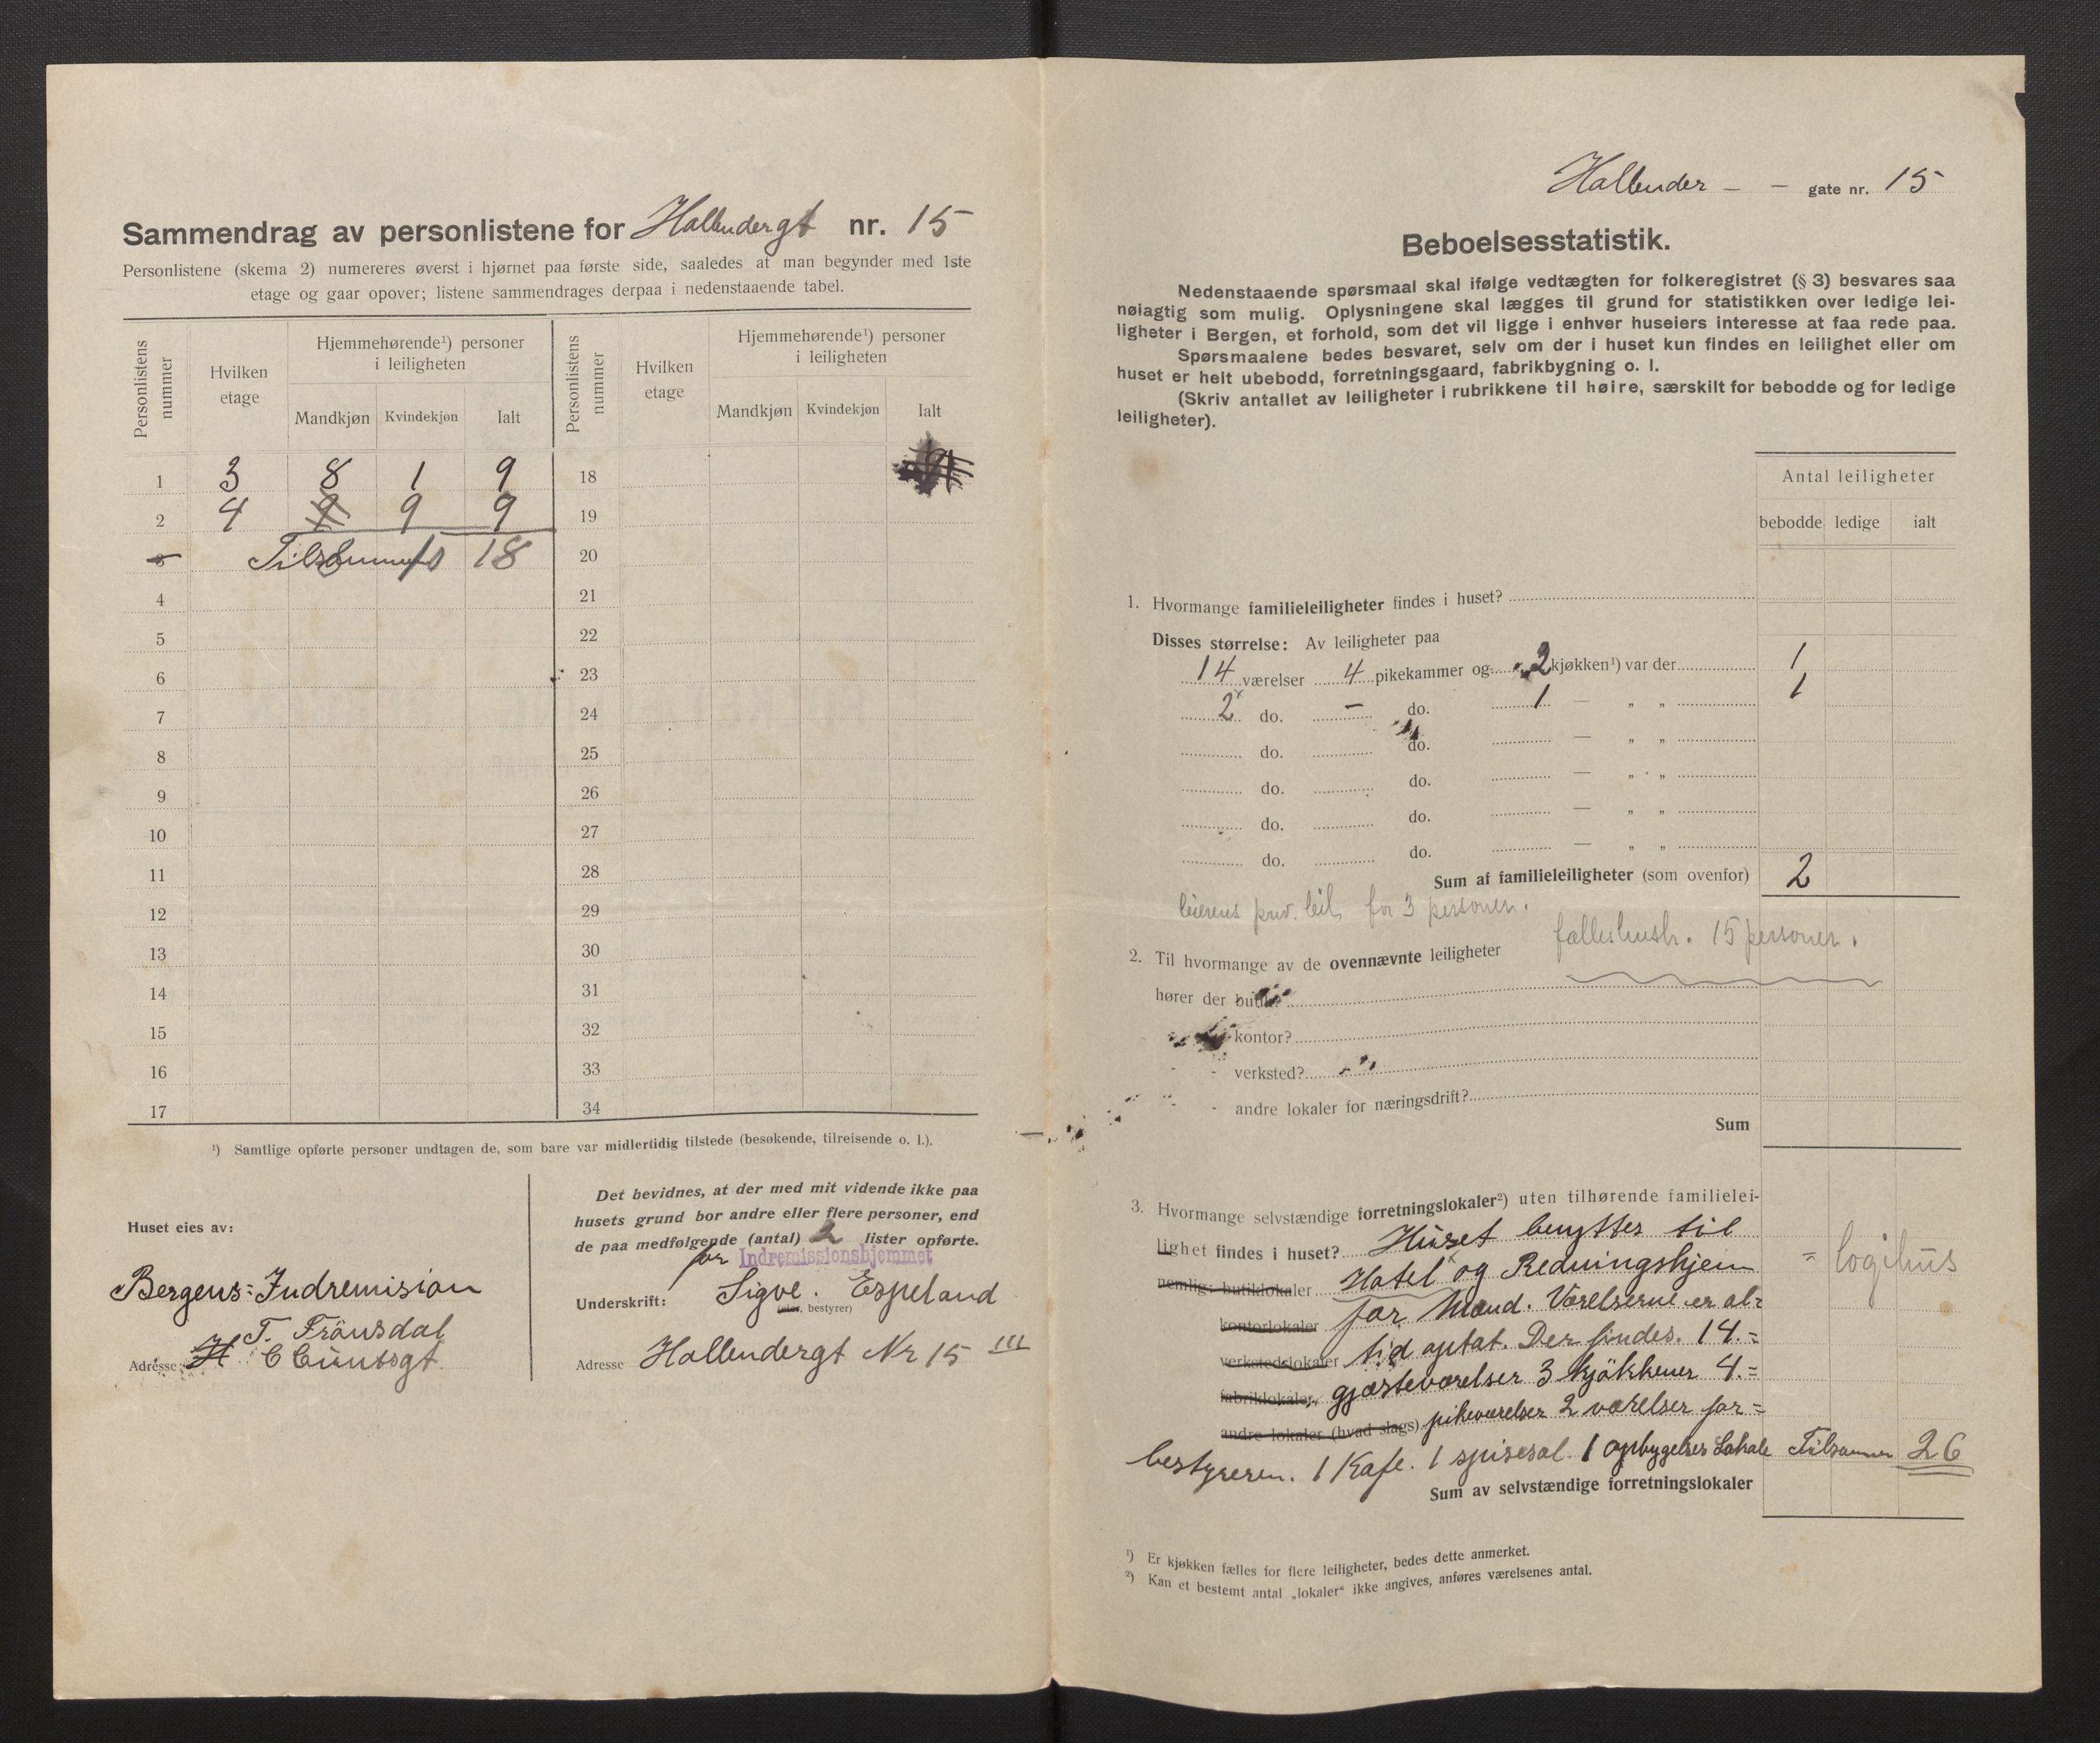 Sammendrag av personlistene for Hollendergt nr. 15
Personlistene (skema 2) numereres øverst i hjørnet paa første side, saaledes at man begynder med 1ste
etage og gaar opover; listene sammendrages derpaa i nedenstaaende tabel.
Personlistens nummer
Hvilken etage
Hjemmehørende¹) personer i leiligheten
Mandkjøn Kvindekjøn Ialt
Personlistens nummer
Hvilken etage
Hjemmehørende¹) personer i leiligheten
Mandkjøn Kvindekjøn Ialt
1 3 8 1 9 18
2 4 9 9 9 19
3 Tilsammen 8 10 18 20
4 21
5 22
6 23
7 24
8 25
9 26
10 27
11 28
12 29
13 30
14 31
15 32
16 33
17 34
¹) Samtlige opførte personer undtagen de, som bare var midlertidig tilstede (besøkende, tilreisende o. l.).
Huset eies av:
Bergens=Indremision
T. Frönsdal
Adresse: H C Cuntsgt
Det bevidnes, at der med mit vidende ikke paa
husets grund bor andre eller flere personer, end
de paa medfølgende (antal) 2 lister opførte.
for Indremissionshjemmet
Underskrift: Sigve. Espeland
(eier, bestyrer)
Adresse Hollendergt Nr 15 III
Hollender - - gate nr. 15
Beboelsesstatistik.
Nedenstaaende spørsmaal skal ifølge vedtægten for folkeregistret (§ 3) besvares saa
nøiagtig som mulig. Oplysningene skal lægges til grund for statistikken over ledige lei-
ligheter i Bergen, et forhold, som det vil ligge i enhver huseiers interesse at faa rede paa.
Spørsmaalene bedes besvaret, selv om der i huset kun findes en leilighet eller om
huset er helt ubebodd, forretningsgaard, fabrikbygning o. l.
(Skriv antallet av leiligheter i rubrikkene til høire, særskilt for bebodde og for ledige
leiligheter).
Antal leiligheter
bebodde ledige ialt
1. Hvormange familieleiligheter findes i huset?
Disses størrelse: Av leiligheter paa
14 værelser 4 pikekammer og 2 kjøkken¹) var der 1
2 do. - do. 1 — „ „ 1
do. do. — „ „
do. do. — „ „
do. do. — „ „
do. do. — „ „
Sum af familieleiligheter (som ovenfor) 2
leierens priv. leil. for 3 personer.
fælleshush. 15 personer.
2. Til hvormange av de ovennævnte leiligheter
hører der butik?
- - kontor?
- - verksted?
- - andre lokaler for næringsdrift?
Sum
3. Hvormange selvstændige forretningslokaler²) uten tilhørende familielei-
lighet findes i huset? Huset benyttes til
nemlig: butiklokaler Hotel og Redningshjem = logihus
kontorlokaler for Mænd. Værelserne er al=
verkstedslokaler tid optat. Der findes. 14.=
fabriklokaler, gjæsteværelser 3 kjökkener 4.=
andre lokaler (hvad slags) pikeværelser 2 værelser for=
bestyreren. 1 Kafe. 1 spisesal. 1 opbygelses Lokale Tilsammen 26
Sum av selvstændige forretningslokaler
¹) Er kjøkken fælles for flere leiligheter, bedes dette anmerket.
²) Kan et bestemt antal „lokaler“ ikke angives, anføres værelsenes antal.